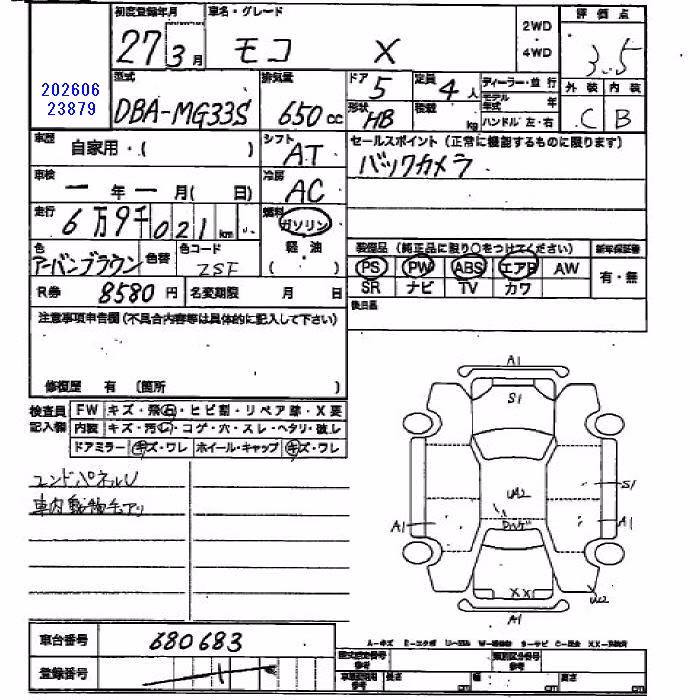 初度登録年月 車名・グレード 2WD 評価点
27 3月 モコ X ・4WD 3.5
202606
23879
型式 排気量 ドア 定員 ディーラー・並行 外装 内装
DBA-MG33S 650cc 5 4人 モデル年式 年 C B
形状 HB 積載 kg ハンドル 左・右
車歴 シフト セールスポイント(正常に機能するものに限ります)
自家用・( ) AT バックカメラ
車検 冷房
ー年ー月( 日) AC
走行 燃料
6万9千021km ガソリン
色 色替 色コード 軽油 装備品(純正品に限り○をつけてください) 新車保証書
アーバンブラウン ZSF ( ) PS PW ABS エアB AW 有・無
R券 8580円 名変期限 月 日 SR ナビ TV カワ
後日品
注意事項申告欄(不具合内容等は具体的に記入して下さい)
修復歴 有 (箇所 )
検査員 FW キズ・飛石・ヒビ割・リペア跡・X要
記入欄 内装 キズ・汚レ・コゲ・穴・スレ・ヘタリ・破レ
ドアミラー キズ・ワレ ホイール・キャップ キズ・ワレ
エンドパネルU
車内動物チェアリ
A1
S1
S1
UA2
A1
A1
XX
UA2
A1
車台番号 680683
登録番号 1
型式指定番号 参考 類別区分番号 参考
長さ cm 幅 cm 高さ cm